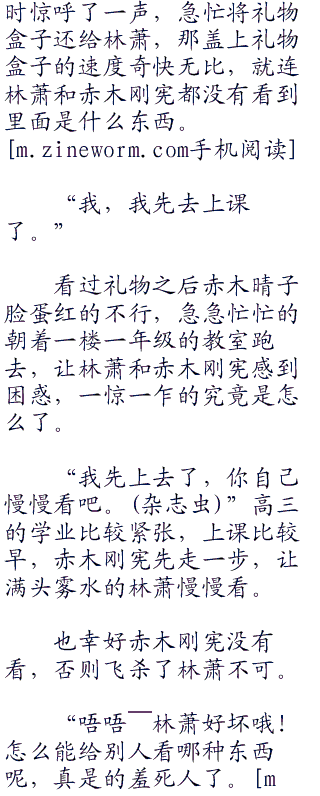 时惊呼了一声，急忙将礼物
盒子还给林萧，那盖上礼物
盒子的速度奇快无比，就连
林萧和赤木刚宪都没有看到
里面是什么东西。
[m.zineworm.com手机阅读]
“我，我先去上课
了。”
看过礼物之后赤木晴子
脸蛋红的不行，急急忙忙的
朝着一楼一年级的教室跑
去，让林萧和赤木刚宪感到
困惑，一惊一乍的究竟是怎
么了。
“我先上去了，你自己
慢慢看吧。(杂志虫)”高三
的学业比较紧张，上课比较
早，赤木刚宪先走一步，让
满头雾水的林萧慢慢看。
也幸好赤木刚宪没有
看，否则飞杀了林萧不可。
“唔唔——林萧好坏哦！
怎么能给别人看哪种东西
呢，真是的羞死人了。[m